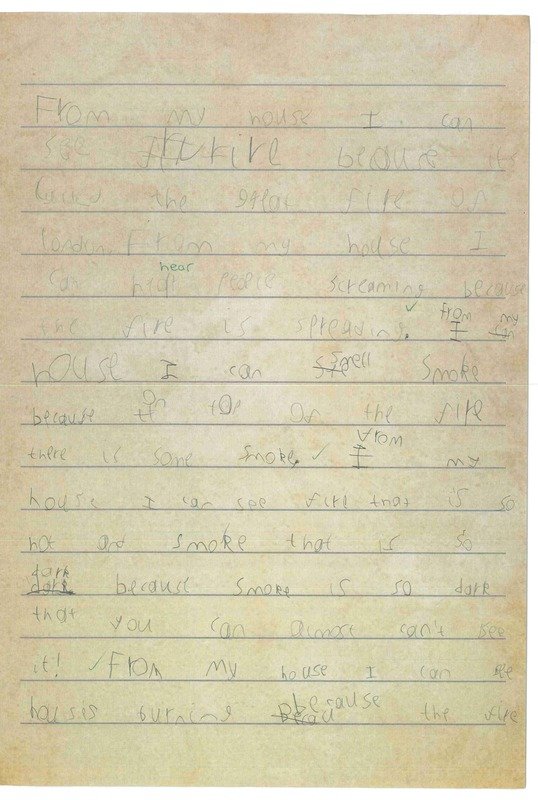 From my house I can
see fire because it's
the great fire of
london. From my house I
can hear people screaming because
the fire is spreading. From my
house I can smell smoke
because on top of the fire
there is some smoke. From my
house I can see fire that is so
hot and smoke that is so
dark because smoke is so dark
that you can almost can't see
it! From my house I can see
houses burning because the fire